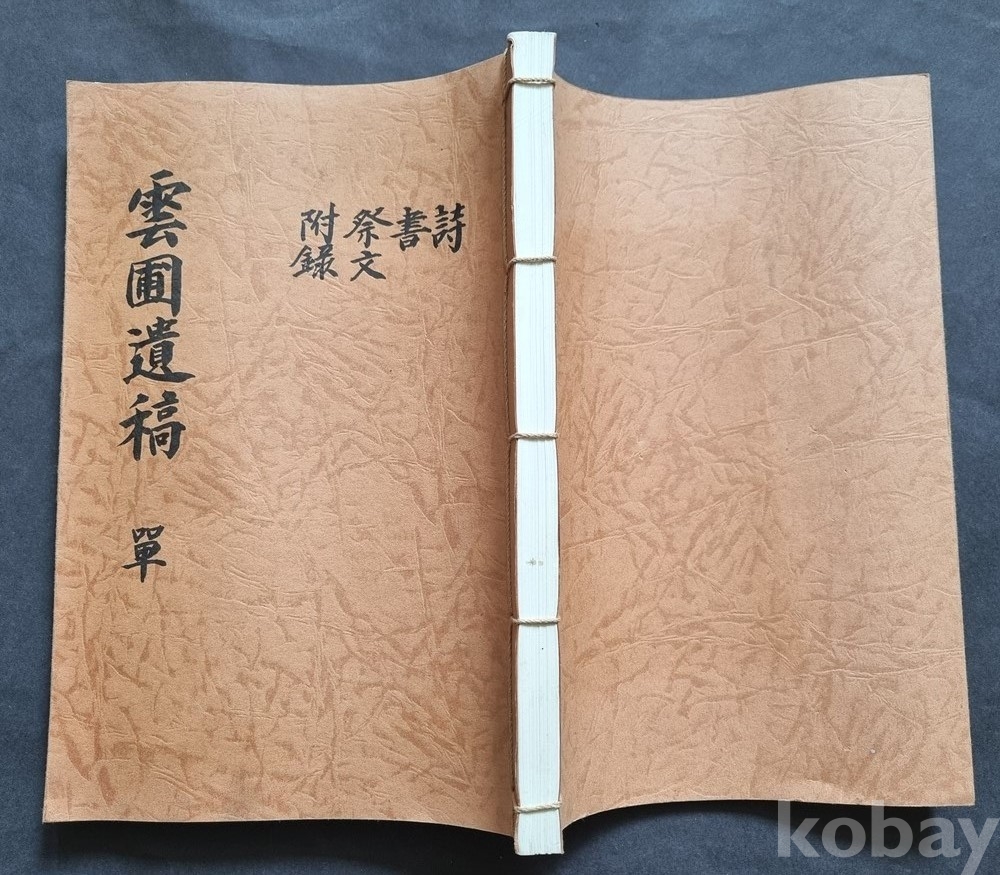 雲圃遺稿 單
詩
書
祭文
附錄
kobay